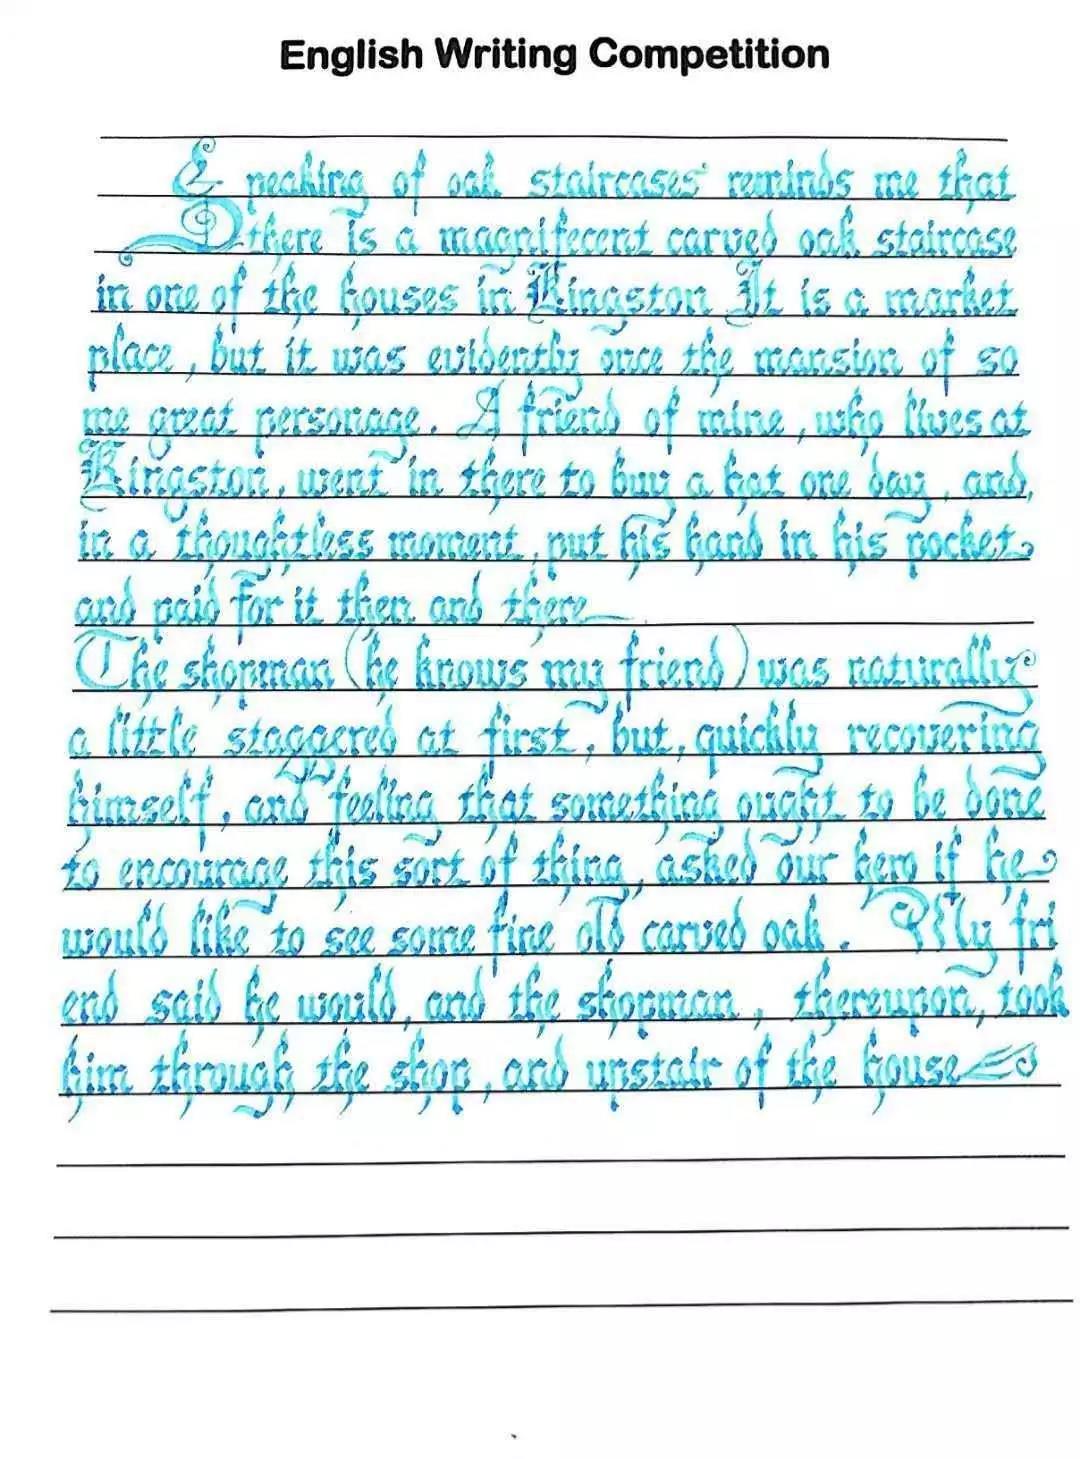 English Writing Competition
Speaking of oak staircases reminds me that
there is a magnifecent carved oak staircase
in one of the houses in Kingston It is a market
place, but it was evidently once the mansion of so
me great personage. A friend of mine, who lives at
Kingston, went in there to buy a hat one day, and,
in a thoughtless moment, put his hand in his pocket
and paid for it then and there
The shopman (he knows my friend) was naturally
a little staggered at first, but, quickly recovering
himself, and feeling that something ought to be done
to encourage this sort of thing, asked our hero if he
would like to see some fine old carved oak. My fri
end said he would, and the shopman, thereupon, took
him through the shop, and upstair of the house